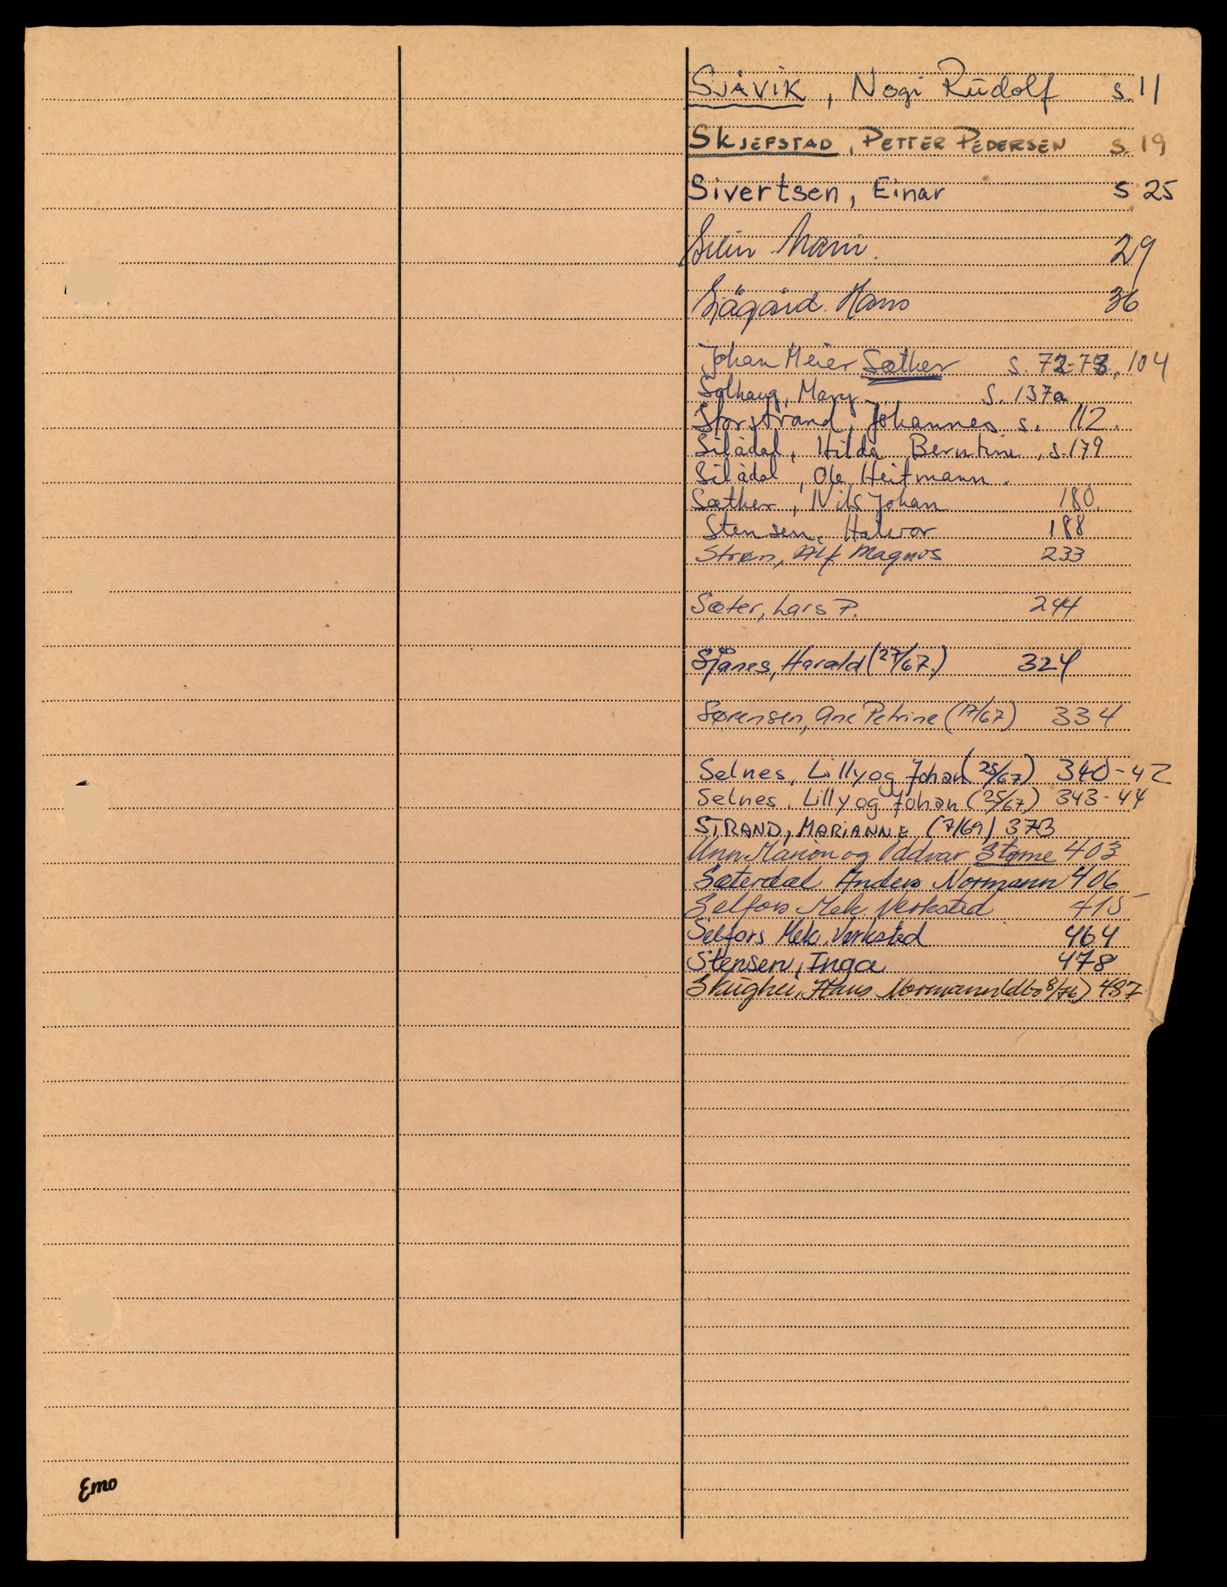 SJÅVIK, Nogi Rudolf s. 11
SKJEFSTAD, PETTER PEDERSEN s. 19
Sivertsen, Einar s 25
29
Hans 36
Johan Meier Sæther s. 72-73, 104
Solhaug, Mary S. 137a
Storstrand, Johannes s. 112.
Silådal, Hilda Berntine, s. 179
Silådal, Ole Heitmann.
Sæther, Nils Johan 180.
Stensen, Halvor 188
Strøm, Alf Magnus 233
Sæter, Lars P. 244
Sjånes, Harald (27/67.) 324
Sørensen, Ane Petrine (17/67) 334
Selnes, Lilly og Johan (25/67) 340-42
Selnes, Lilly og Johan (25/67) 343-44
STRAND, MARIANNE (7/69) 373
Unn Marion og Oddvar Storne 403
Sæterdal Anders Normann 406
Selfors Mek. Verksted 415
Selfors Mek. Verksted 464
Stensen, Inga 478
Hans Normann 487
Emo